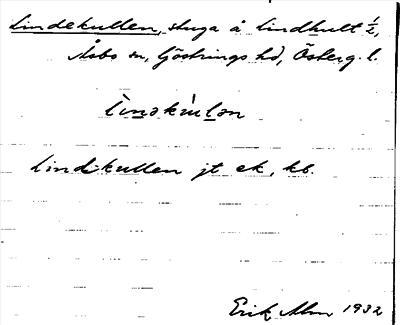 Lindekullen, stuga å Lindhult ½,
Åsbo sn, Göstrings hd, Österg. l.
lìnəkùlən
Lindekullen jt ek, kb.
Erik Alm 1932